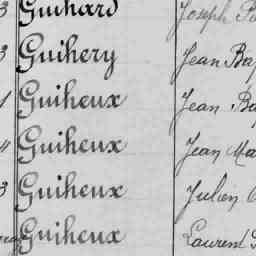 3 Guihard Joseph
3 Guihery Jean
1 Guiheux Jean
4 Guiheux Jean
3 Guiheux Julien
Guiheux Laurent